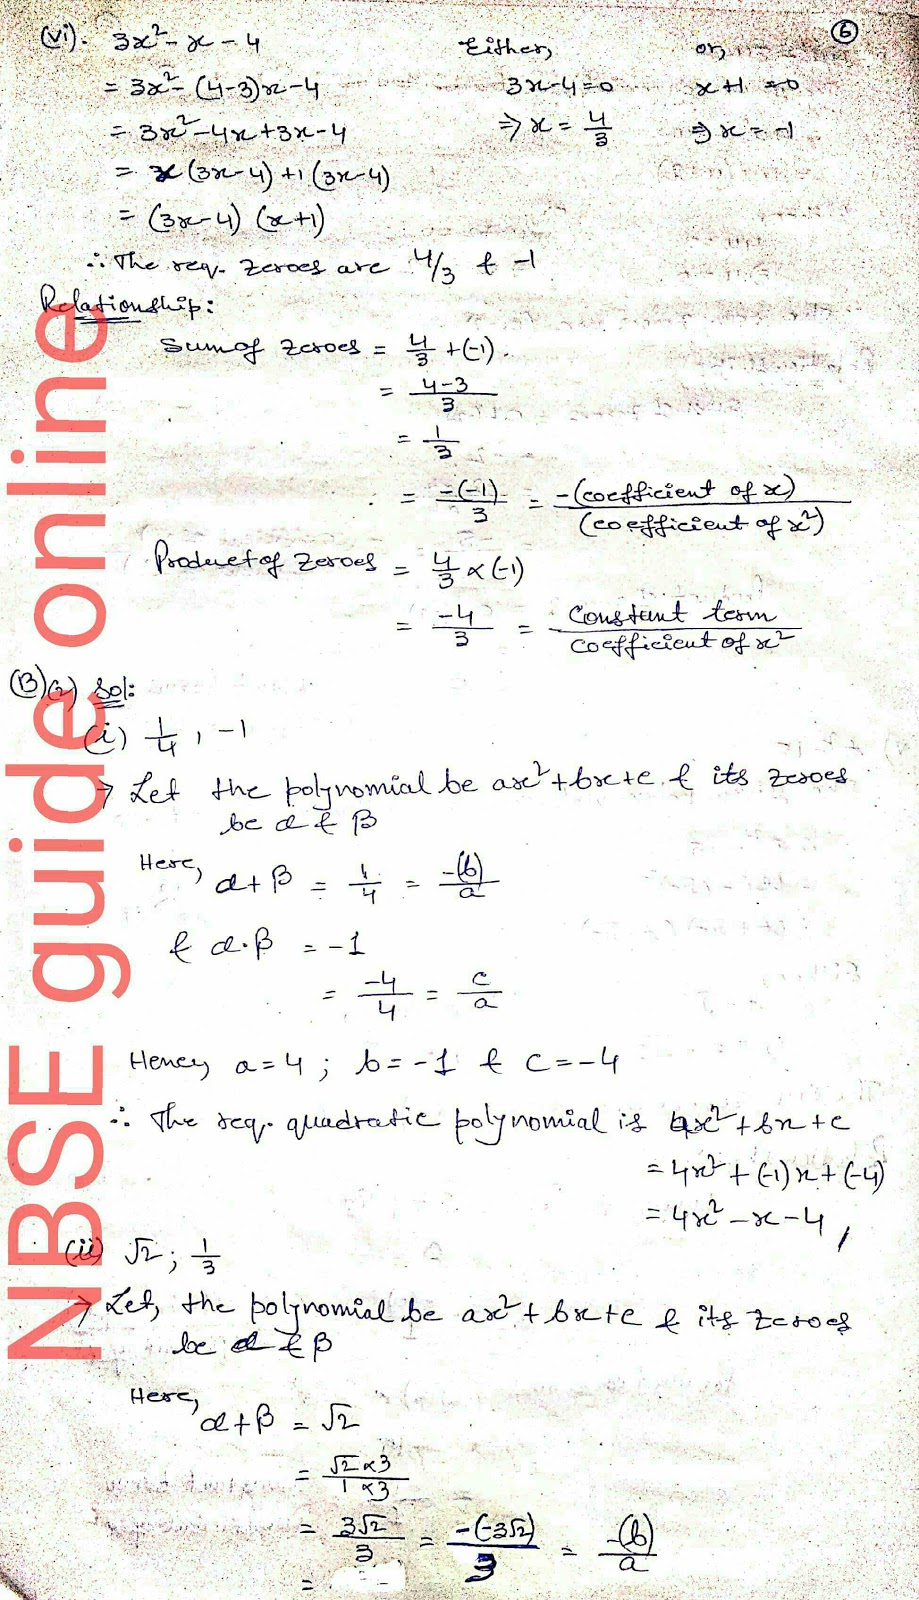 (vi). 3x² - x - 4
= 3x² - (4-3)x - 4
= 3x² - 4x + 3x - 4
= x(3x-4) + 1(3x-4)
= (3x-4) (x+1)
Either,
3x-4=0
⇒ x = 4/3
or,
x+1 = 0
⇒ x = -1
6
∴ The req. zeroes are 4/3 & -1
Relationship:
Sum of zeroes = 4/3 + (-1).
= (4-3)/3
= 1/3
= -(-1)/3 = -(coefficient of x)/(coefficient of x²)
Product of zeroes = 4/3 × (-1)
= -4/3 = Constant term/coefficient of x²
(B)(2) Sol:
(i) 1/4, -1
→ Let the polynomial be ax²+bx+c & its zeroes
be α & β
Here, α+β = 1/4 = -(b)/a
& α·β = -1
= -4/4 = c/a
Hence, a=4; b=-1 & c=-4
∴ The req. quadratic polynomial is ax²+bx+c
= 4x² + (-1)x + (-4)
= 4x² - x - 4,
(ii) √2; 1/3
→ Let, the polynomial be ax²+bx+c & its zeroes
be α & β
Here, α+β = √2
= √2×3/1×3
= 3√2/3 = -(-3√2)/3 = -(b)/a
=
NBSE guide online